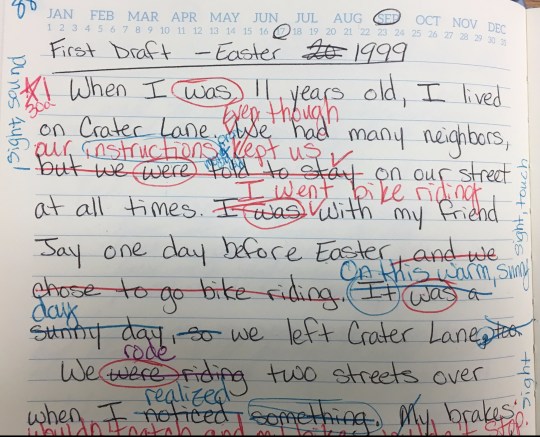 JAN FEB MAR APR MAY JUN JUL AUG SEP OCT NOV DEC
1 2 3 4 5 6 7 8 9 10 11 12 13 14 15 16 17 18 19 20 21 22 23 24 25 26 27 28 29 30 31
First Draft - Easter 20 1999
When I was 11 years old, I lived
Even though
on Crater Lane. We had many neighbors,
our instructions kept us
but we were told to stay on our street
I went bike riding
at all times. I was with my friend
Jay one day before Easter, and we
On this warm, sunny
chose to go bike riding. It was a
day
sunny day, so we left Crater Lane
rode
We were riding two streets over
realized
when I noticed something. My brakes
1 sight sound
sight, touch
sight